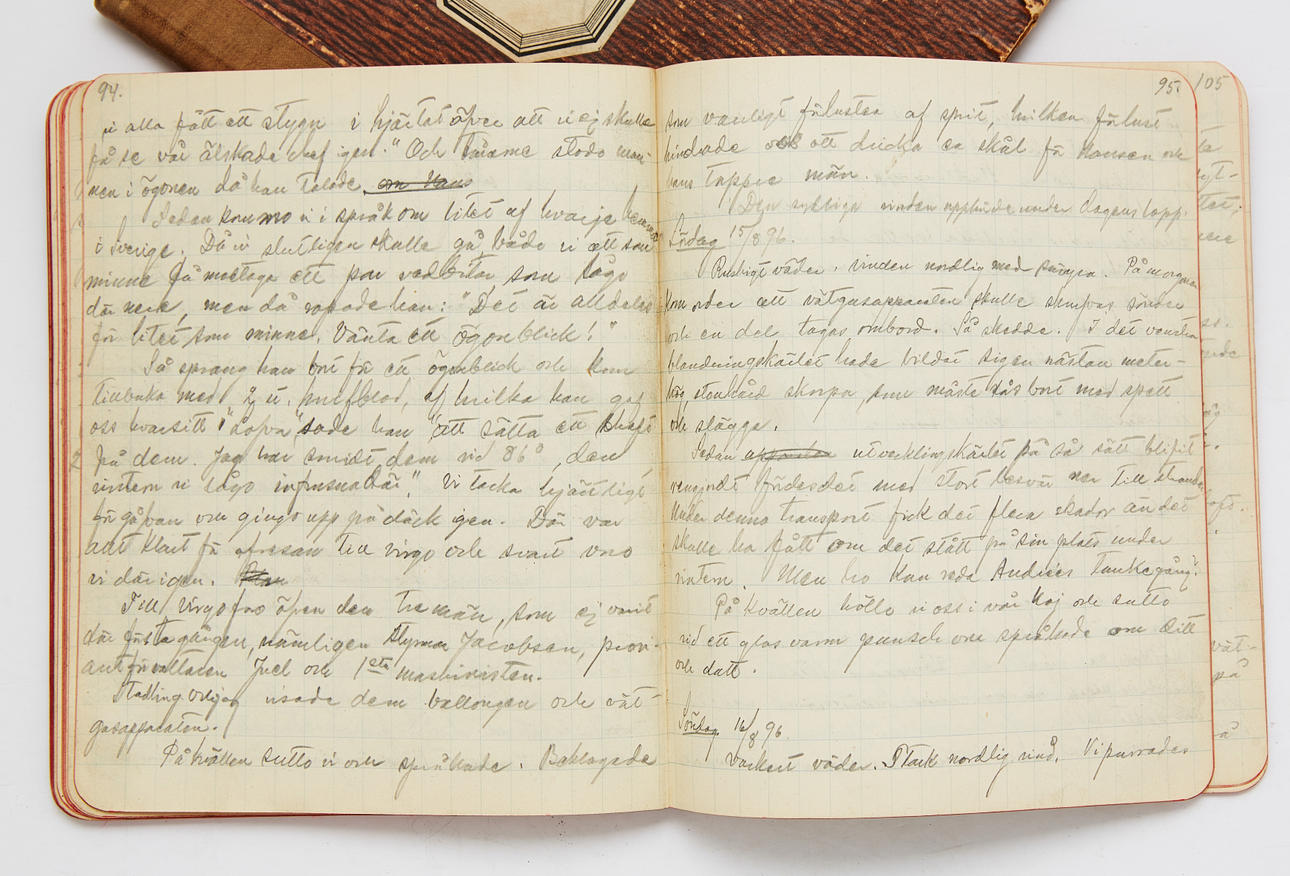 94.
vi alla fått ett stygn i hjärtat öfver att vi ej skulle
få se vår älskade chef igen." Och tårarne stodo man-
nen i ögonen då han talade,
Sedan kommo vi i språk om litet af hvarje
i Sverige. Då vi slutligen skulle gå både vi att som
minne få mottaga ett par vedbitar, som lågo
där nere, men då ropade han: "Det är alldeles
för litet som minne. Vänta ett ögonblick!"
Så sprang han bort för ett ögonblick och kom
tillbaka med 2 st. knifblad, af hvilka han gaf
oss hvarsitt "sade han "att sätta ett skaft
på dem. Jag har smidt dem vid 86°, den
vintern vi lågo infrusna där." Vi tacka hjärtligt
för gåfvan och gingo upp på däck igen. Där var
allt klart för afresan till Virgo och snart voro
vi där igen.
Till Virgo foro äfven den tre män, som ej varit
där första gången, nämligen styrman Jacobsen, provi-
antförvaltaren Juel och 1sta maskinisten.
Stadling visade dem ballongen och vät-
gasapparaten.
På kvällen sutto vi och språkade. Beklagade
95.
som vanligt förlusten af sprit, hvilken förlust
hindrade oss att dricka en skål för Nansen och
hans tappre män.
Den sydliga vinden upphörde under dagens lopp.
Lördag 15/8 96.
Ruskigt väder. Vinden nordlig med snöyra. På morgonen
kom order att vätgasapparaten skulle skrufvas sönder
och en del tagas ombord. Så skedde. I det vänstra
blandningskärlet hade bildat sig en nästan meter-
hög, stenhård skorpa, som måste slås bort med spett
och slägga.
Sedan apparaten utvecklingskärlet på så sätt blifvit
rengjordt fördes det med stort besvär ner till stranden.
Under denna transport fick det flera skador än det
skulle ha fått om det stått på sin plats under
vintern. Men ho kan reda Andrées tankegång?
På kvällen höllo vi oss i vår koj och sutto
vid ett glas varm punsch och språkade om ditt
och datt.
Söndag 16/8 96.
Vackert väder. Stark nordlig vind. Vi purrades
105